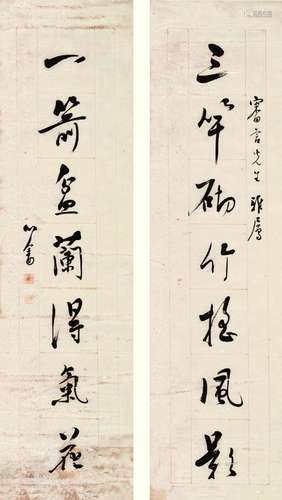 審言先生 雅屬
三竿砌竹搖風影
一箭盆蘭得氣花
心畬